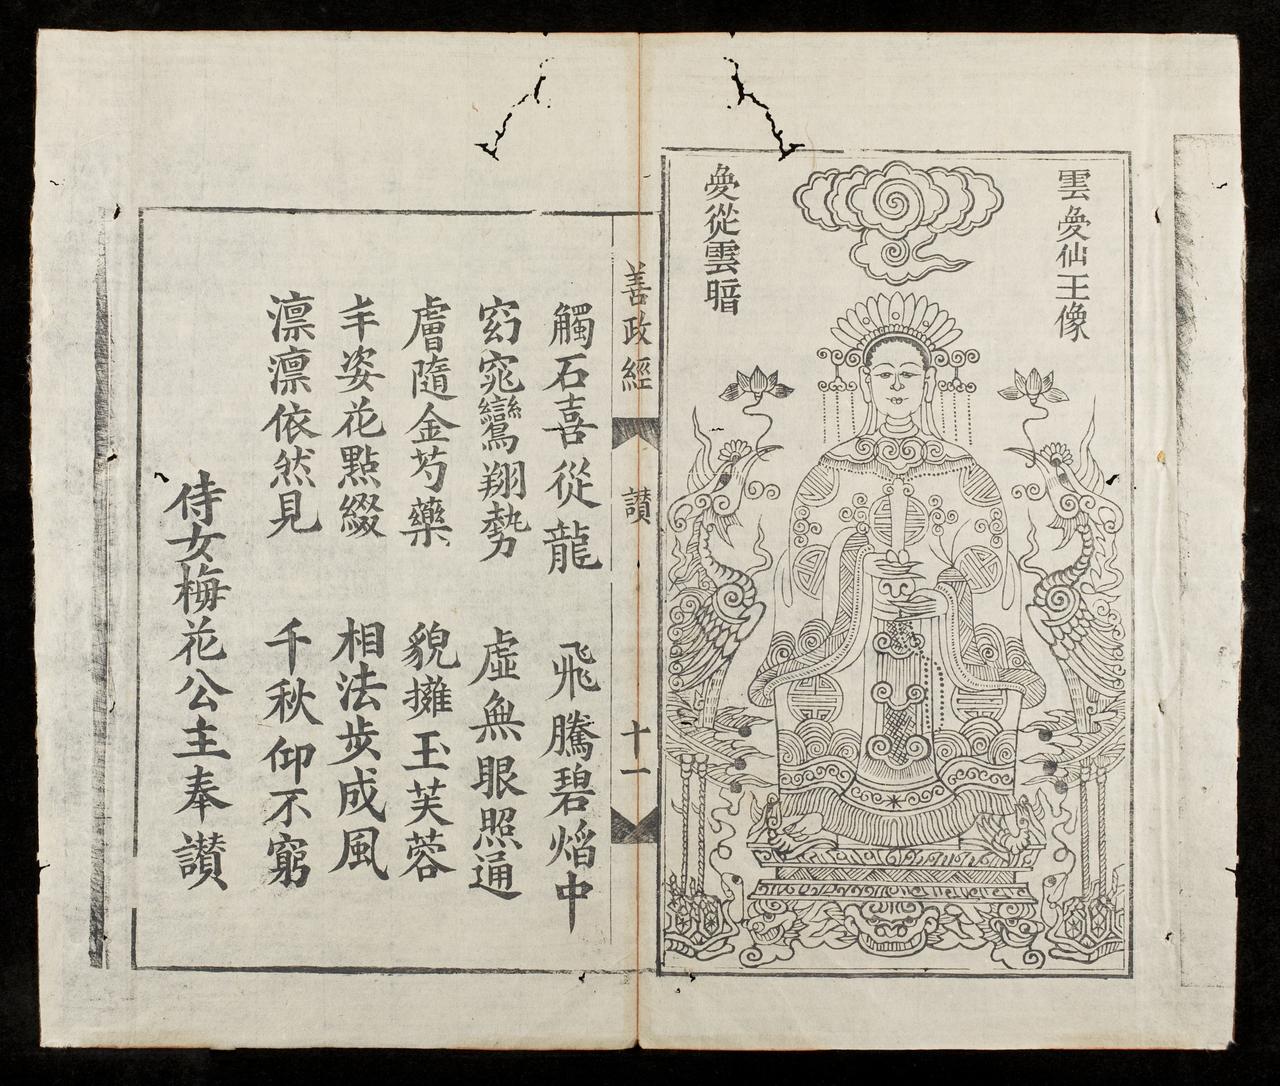 雲㚑仙王像
㚑從雲暗
善政經
讃
十一
觸石喜從龍 飛騰碧焰中
窈窕鸞翔勢 虛無眼照通
膚隨金芍藥 貌擁玉芙蓉
丰姿花點綴 相法步成風
凛凛依然見 千秋仰不窮
侍女梅花公主奉讃